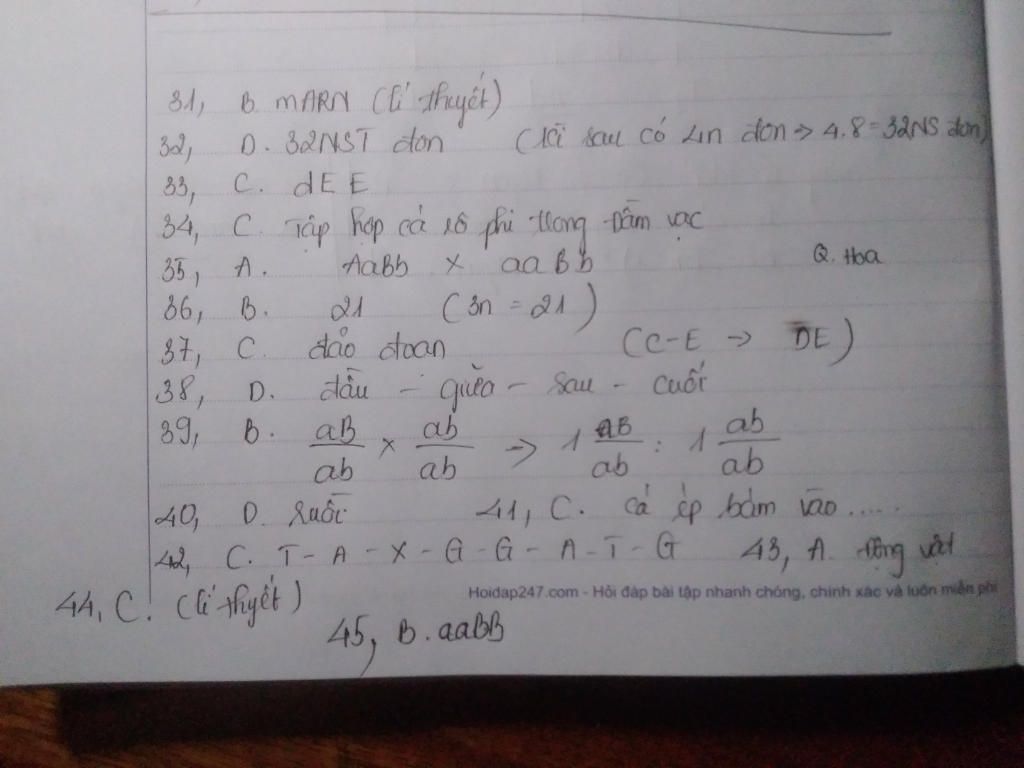 31, B. mARN (lí thuyết)
32, D. 32NST đơn (kì sau có 4n đơn => 4.8 = 32NS đơn)
33, C. dEE
34, C. Tập hợp cá rô phi trong đầm vạc
35, A. AaBb x aaBb Q. Hoa
36, B. 21 (3n = 21)
37, C. đảo đoạn (C-E -> DE)
38, D. đầu - giữa - sau - cuối
39, B. aB/ab x ab/ab => 1 aB/ab : 1 ab/ab
40, D. Ruồi 41, C. cá ép bám vào .....
42, C. T - A - X - G - G - A - T - G 43, A. động vật
44, C. (lí thuyết)
Hoidap247.com - Hỏi đáp bài tập nhanh chóng, chính xác và luôn miễn phí
45, B. aaBB